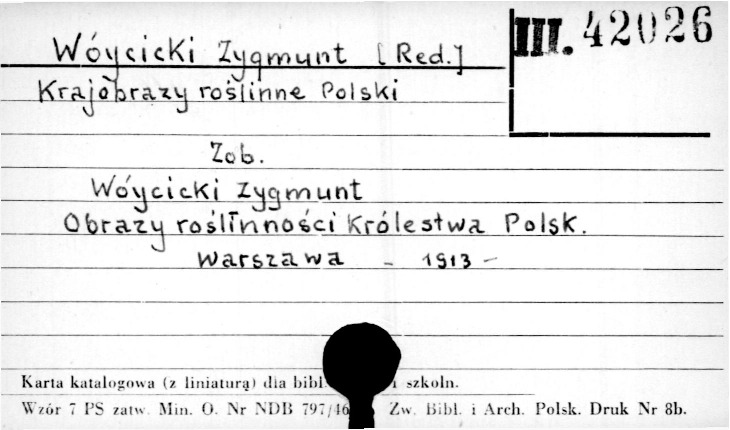 Wóycicki Zygmunt [Red.]
III. 42026
Krajobrazy roślinne Polski
Zob.
Wóycicki Zygmunt
Obrazy roślinności Królestwa Polsk.
Warszawa - 1913 -
Karta katalogowa (z liniaturą) dla bibl. i szkoln.
Wzór 7 PS zatw. Min. O. Nr NDB 797/46 Zw. Bibl. i Arch. Polsk. Druk Nr 8b.